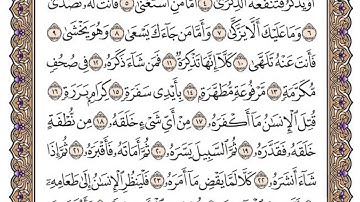 أَوْ يَذَّكَّرُ فَتَنفَعَهُ ٱلذِّكْرَىٰٓ ٤ أَمَّا مَنِ ٱسْتَغْنَىٰ ٥ فَأَنتَ لَهُۥ تَصَدَّىٰ
٦ وَمَا عَلَيْكَ أَلَّا يَزَّكَّىٰ ٧ وَأَمَّا مَن جَآءَكَ يَسْعَىٰ ٨ وَهُوَ يَخْشَىٰ ٩
فَأَنتَ عَنْهُ تَلَهَّىٰ ١٠ كَلَّآ إِنَّهَا تَذْكِرَةٌ ١١ فَمَن شَآءَ ذَكَرَهُۥ ١٢ فِى صُحُفٍ
مُّكَرَّمَةٍ ١٣ مَّرْفُوعَةٍ مُّطَهَّرَةٍۭ ١٤ بِأَيْدِى سَفَرَةٍ ١٥ كِرَامٍۭ بَرَرَةٍ ١٦
قُتِلَ ٱلْإِنسَٰنُ مَآ أَكْفَرَهُۥ ١٧ مِنْ أَىِّ شَىْءٍ خَلَقَهُۥ ١٨ مِن نُّطْفَةٍ
خَلَقَهُۥ فَقَدَّرَهُۥ ١٩ ثُمَّ ٱلسَّبِيلَ يَسَّرَهُۥ ٢٠ ثُمَّ أَمَاتَهُۥ فَأَقْبَرَهُۥ ٢١ ثُمَّ إِذَا
شَآءَ أَنشَرَهُۥ ٢٢ كَلَّا لَمَّا يَقْضِ مَآ أَمَرَهُۥ ٢٣ فَلْيَنظُرِ ٱلْإِنسَٰنُ إِلَىٰ طَعَامِهِۦٓ